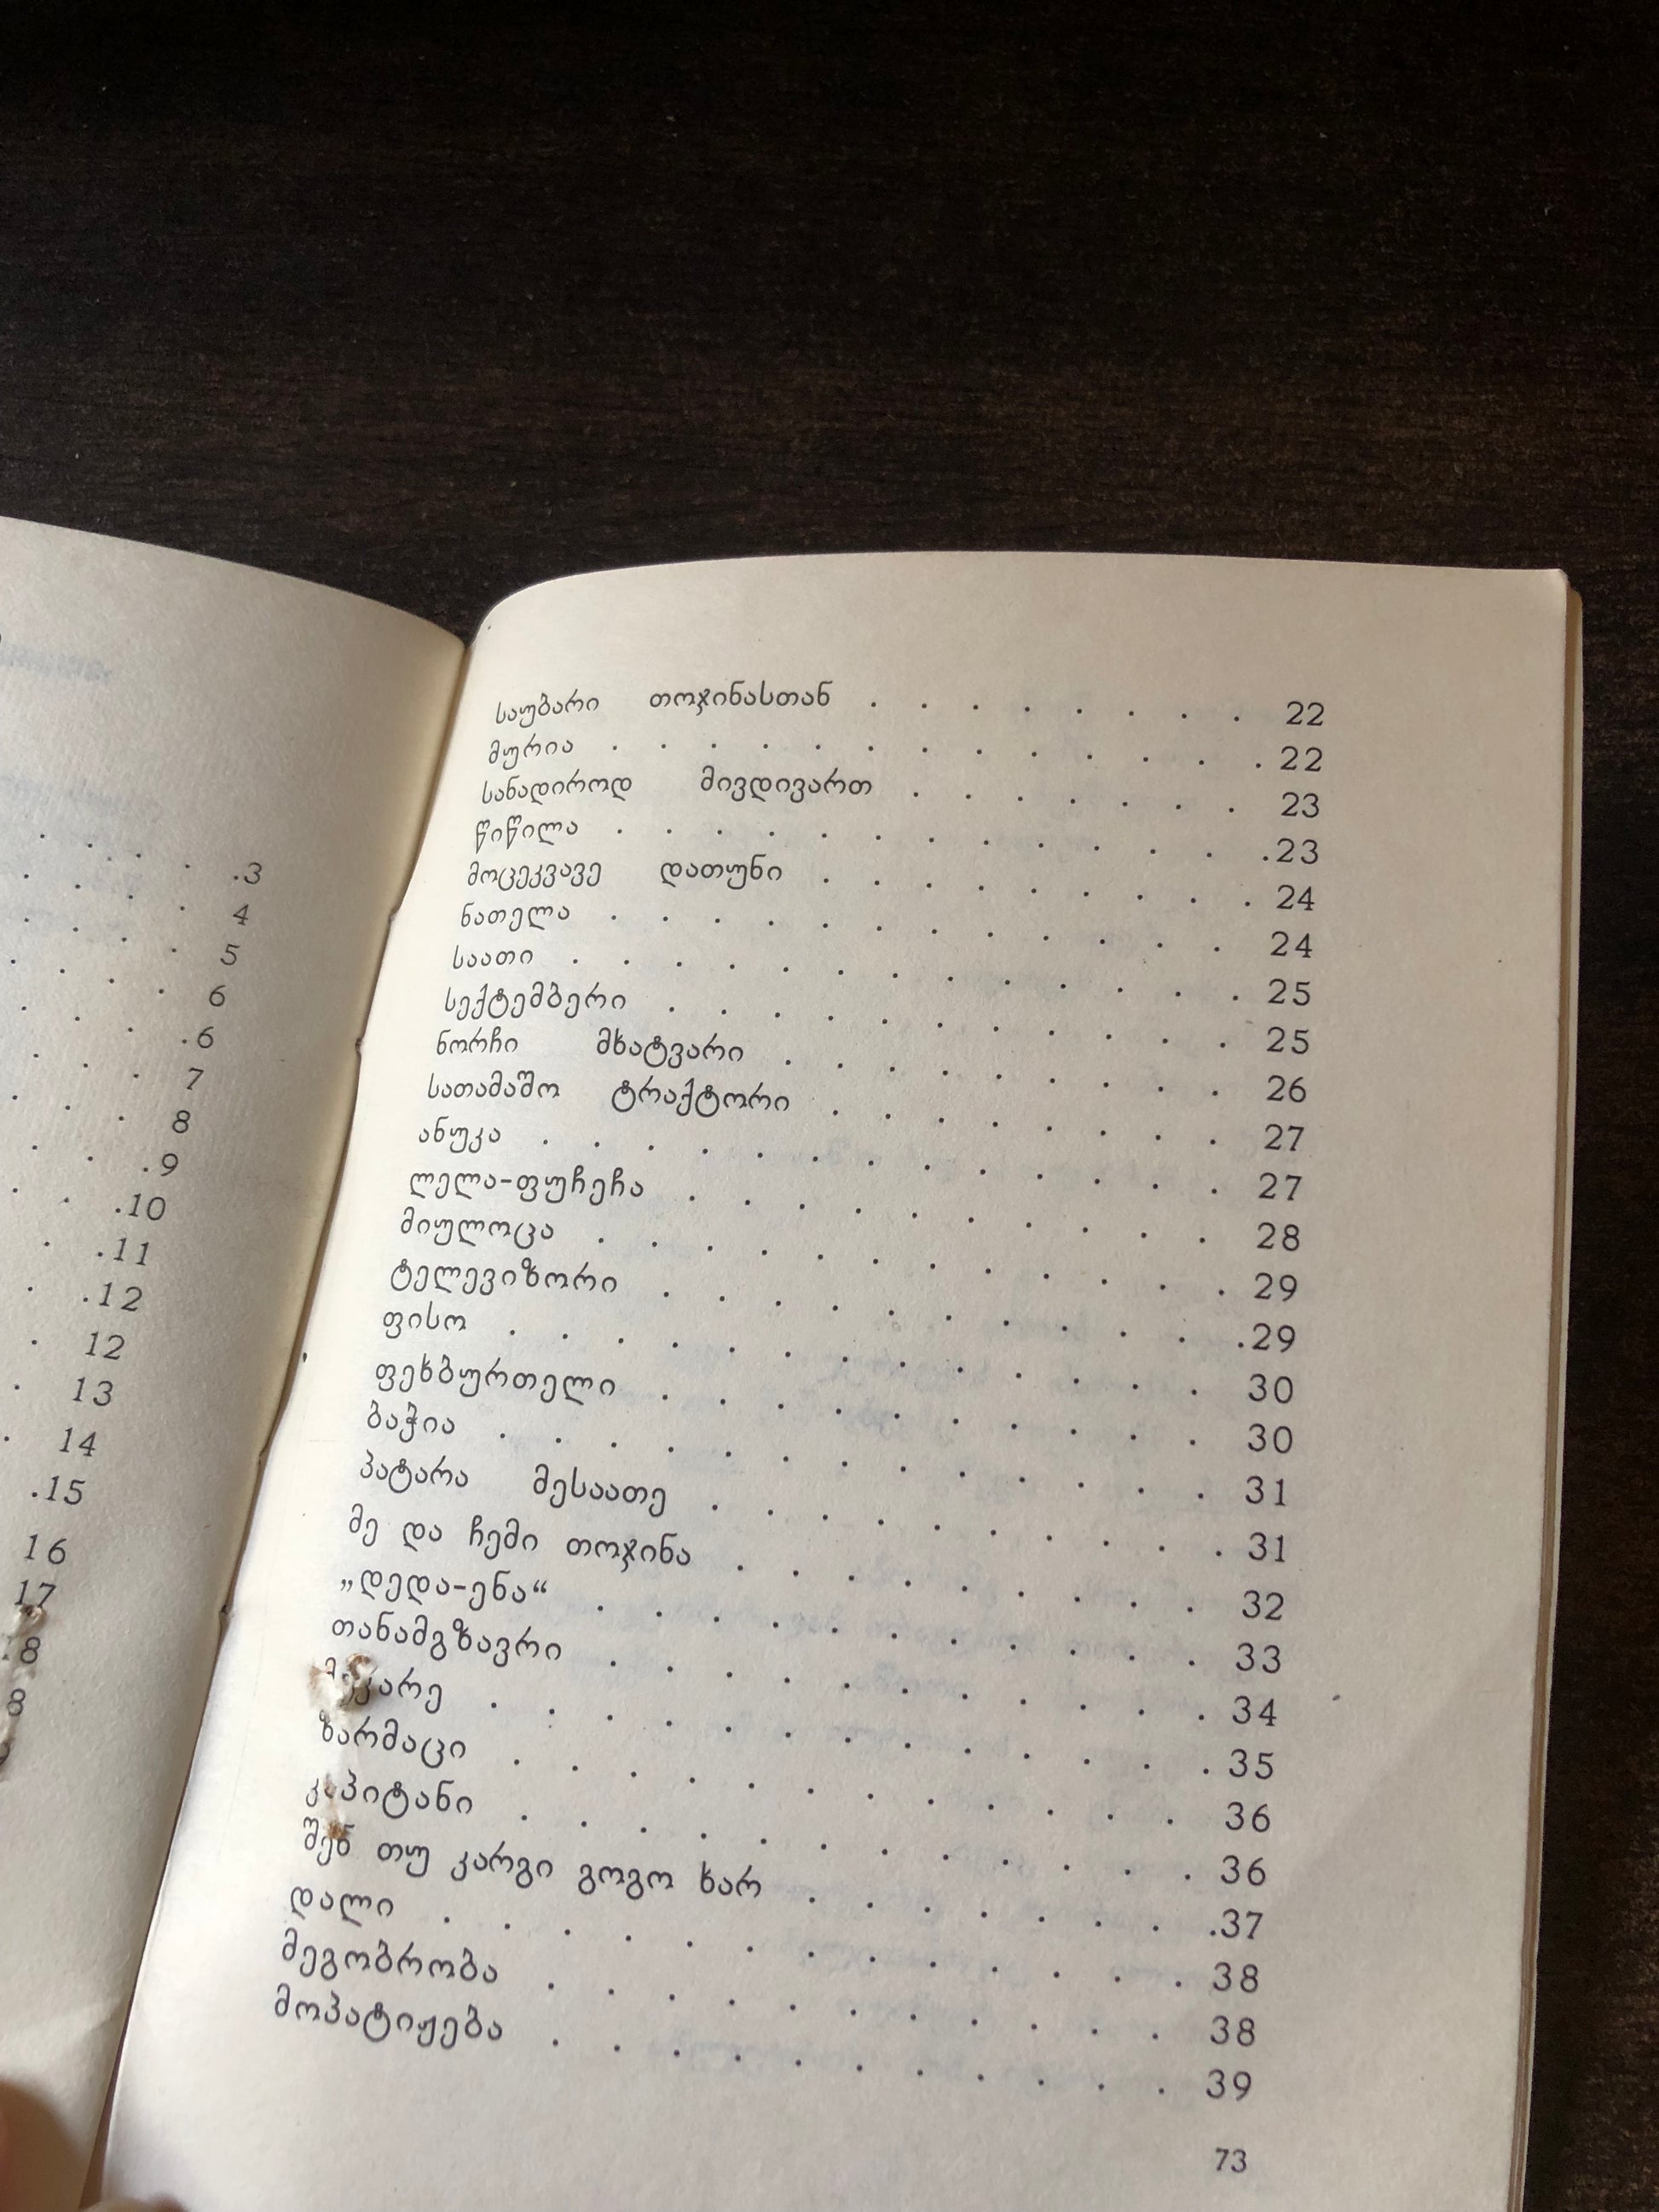 . . . . .3
. . . 4
. . . 5
. . . 6
. . .6
. . . 7
. . . 8
. . .9
. . .10
. .11
. .12
. 12
. 13
. 14
.15
16
17
8
8
საუბარი თოჯინასთან . . . . . . . . 22
მურია . . . . . . . . . . . . . 22
სანადიროდ მივდივართ . . . . . . . 23
წიწილა . . . . . . . . . . . . .23
მოცეკვავე დათუნი . . . . . . . . . 24
ნათელა . . . . . . . . . . . . 24
საათი . . . . . . . . . . . . . 25
სექტემბერი . . . . . . . . . . . 25
ნორჩი მხატვარი . . . . . . . . . 26
სათამაშო ტრაქტორი . . . . . . . . 27
ანუკა . . . . . . . . . . . . . 27
ლელა-ფუჩეჩა . . . . . . . . . . 28
მიულოცა . . . . . . . . . . . . 29
ტელევიზორი . . . . . . . . . . .29
ფისო . . . . . . . . . . . . . 30
ფეხბურთელი . . . . . . . . . . 30
ბაჭია . . . . . . . . . . . . . 31
პატარა მესაათე . . . . . . . . . . 31
მე და ჩემი თოჯინა . . . . . . . . . 32
„დედა-ენა“ . . . . . . . . . . . 33
თანამგზავრი . . . . . . . . . . . 34
მეკარე . . . . . . . . . . . . . 35
ზარმაცი . . . . . . . . . . . . 36
კაპიტანი . . . . . . . . . . . . 36
შენ თუ კარგი გოგო ხარ . . . . . . . .37
დალი . . . . . . . . . . . . . 38
მეგობრობა . . . . . . . . . . . 38
მოპატიჟება . . . . . . . . . . . 39
73